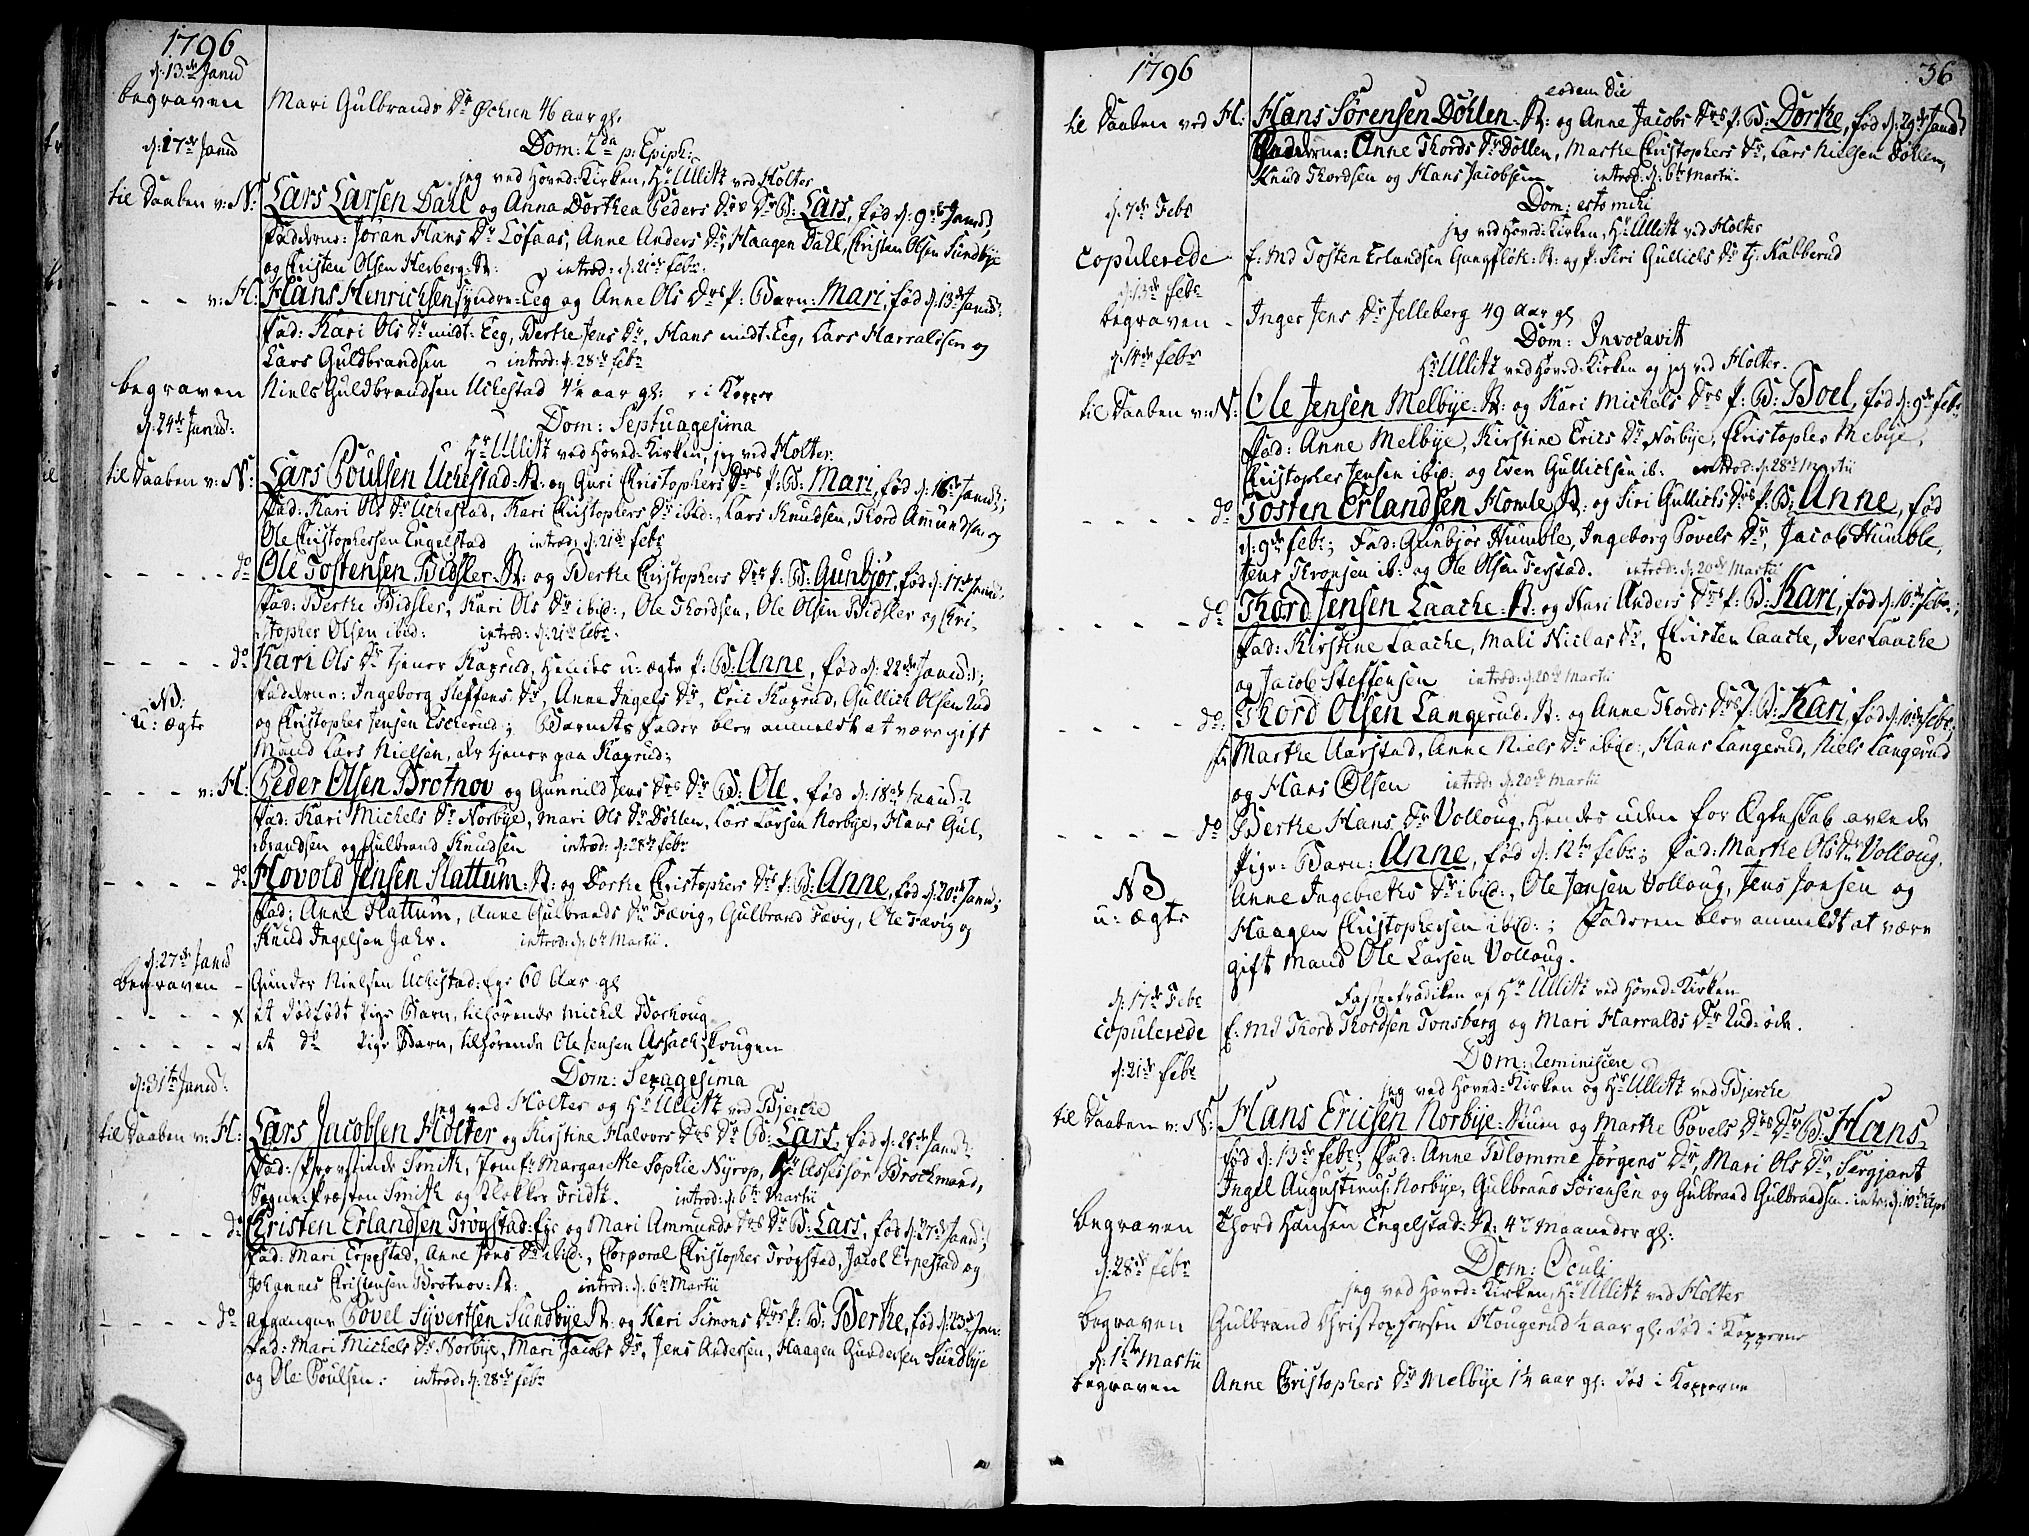 1796
d: 13de Janu:
begraven Mari Gulbrands Dr Øchren 46 aar gl.
d: 17de Janu
Dom: 2da p: Epiph:
jeg ved Hoved-Kirken, Hr Ullitz ved Holter
til Daaben v: N: Lars Larsen Dahl og Anna Dorthea Peders Drs Dr B: Lars, fød d: 9de Janu,
Fadderne: Jøran Hans Dr Løfaas, Anne Anders Dr, Haagen Dahl, Christen Olsen Sundbye
og Christen Olsen Herberg: R: introd: d: 21de Febr.
- - - v: H: Hans Henrichsen syndre-Eeg og Anne Ols Drs P: Barn: Mari, fød d: 13de Janu:
Fad: Kari Ols Dr midt-Eeg, Berthe Jens Dr, Hans midt-Eeg, Lars Harraldsen og
Lars Guldbrandsen introd: d: 28de Febr
begraven Niels Guldbrandsen Uchestad 4½ aar gl: i Kopper
d: 24de Janu:
Dom: Septuagesima
Hr Ullitz ved Hoved-Kirken, jeg ved Holter.
til Daaben v: N: Lars Poulsen Uchestad: R: og Guri Christophers Drs P: B: Mari, fød d: 16de Janu;
Fad: Kari Ols Dr Uchestad, Kari Christophers Dr ibid:, Lars Knudsen, Thord Amundsen og
Ole Christophersen Engelstad introd: d: 21de Febr
- - - - - do Ole Tostensen Bidsler: R: og Berthe Christophers Drs P: B: Gunbjør, fød d: 17de Janu:
Fad: Berthe Bidsler, Kari Ols Dr ibid:, Ole Thordsen, Ole Olsen Bidsler og Chri-
stopher Olsen ibid: introd: d: 21de Febr.
- - - - do Kari Ols Dr tjener Kagrud, Hendes u: ægte P: B: Anne, fød d: 22de Janu:;
NB:
u: ægte
Fadderne: Ingeborg Steffens Dr, Anne Ingels Dr, Eric Kagrud, Gullich Olsen Rud
og Christopher Jensen Escherud; Barnets Fader blev anmeldt at være gift
Mand Lars Nielsen, der tjener paa Kagrud;
- - - v: H: Peder Olsen Brotnov og Gunnild Jens Drs Dr B: Ole, fød d: 18de Janu:
Fad: Kari Michels Dr Norbye, Mari Ols Dr Døhlen, Lars Larsen Norbye, Hans Gul-
brandsen og Gulbrand Knudsen introd: d: 28de Febr
- - - - do Hovold Jensen Slattum: R: og Dorthe Christophers Drs P: B: Anne, fød d: 20de Janu;
Fad: Anne Slattum, Anne Gulbrands Dr Fævig, Gulbrand Fævig, Ole Fævig og
Knud Ingelsen Jahr. introd: d: 6te Martii.
d: 27de Janu
begraven - Gunder Nielsen Uchestad: Ege 60 Aar gl
- - - - et dødfødt Pige Barn, tilhørende Michel Borhoug
- - - - et do Pige Barn, tilhørende Ole Jensen Assach-Hougen
d: 31te Janu:
Dom: Sexagesima
jeg ved Holter og Hr Ullitz ved Bjercke
til Daaben v: H: Lars Jacobsen Holter og Kirstine Halvors Drs Dr B: Lars, fød d: 25de Janu:
Fad: Provstinde Smith, Jomfr: Margarethe Sophie Nyrop, Hr Assessor Brockmand,
Sogne-Præsten Smith og Klokker Fridth. introd: d: 6te Martii
- - - - do Christen Erlandsen Trøgstad: Ege og Mari Ammunds Drs Dr B: Lars, fød d: 27de Janu;
Fad: Mari Erpestad, Anne Jons Dr ibid:, Corporal Christopher Trøgstad, Jacob Erpestad og
Johannes Christensen Brotnov: R: introd: d: 6te Martii
- - - - do afgangne Povel Syvertsen Sundbye R: og Kari Simons Drs P: B: Berthe, fød d: 23de Jan:
Fad: Mari Michels Dr Norbye, Mari Jacobs Dr, Jens Andersen, Haagen Gundersen Sundbye
og Ole Poulsen: introd: d: 28de Febr
1796 36
eodem die
til Daaben ved H: Hans Sørensen Døhlen: R: og Anne Jacobs Drs P: B: Dorthe, fød d: 29de Janu
Fadderne: Anne Thords Dr Døllen, Marthe Christophers Dr, Lars Nielsen Døhlen,
Knud Thordsen og Hans Jacobsen introd: d: 6te Martii.
d: 7de Febr
Dom: esto mihi
jeg ved Hoved-Kirken, Hr Ullitz ved Holter
copulerede E: Md Tosten Erlandsen Gangfløt: R: og P: Siri Gullichs Dr tj: Kabberud
d: 13de Febr
begraven - Inger Jens Dr Jelleberg 49 aar gl
d: 14de Febr
Dom: Invocavit
Hr Ullitz ved Hoved-Kirken og jeg ved Holter.
til Daaben v: N: Ole Jensen Melbye: R: og Kari Michels Drs P: B: Boel, fød d: 9de Febr
Fad: Anne Melbye, Kirstine Erics Dr Norbye, Christopher Mebye,
Christopher Jensen ibid: og Even Gullichsen ib: introd: d: 28de Martii
- - - - do Tosten Erlandsen Homle R: og Siri Gullichs Drs P: B: Anne, fød
d: 9de Febr; Fad: Gunbjør Humble, Ingeborg Povels Dr, Jacob Humble,
Jens Thronsen ib: og Ole Olsen Ierstad. introd: d: 20de Martii
- - - - do Thord Jensen Laache: R: og Kari Anders Drs P: B: Kari, fød d: 10de Febr;
Fad: Kirstine Laache, Mali Niclas Dr, Christen Laache, Iver Laache
og Jacob Steffensen introd: d: 20de Martii
- - - - do: Thord Olsen Langerud: R: og Anne Thords Drs P: B: Kari, fød d: 10de Febr;
F: Marthe Aarstad, Anne Niels Dr ibid:, Hans Langerud, Niels Langerud
og Hans Olsen introd: d: 20de Martii
- - - - do Berthe Hans Dr Volloug, Hendes uden for Ægteskab avlede
Pige-Barn: Anne, fød d: 12te Febr; Fad: Marthe Ols Dr Volloug,
NB
u: ægte
Anne Ingebrets Dr ibid:, Ole Jensen Volloug, Jens Jonsen og
Haagen Christophersen ibid:; Faderen blev anmeldt at være
gift Mand Ole Larsen Volloug.
d: 17de Febr
Fasteprædiken af Hr Ullitz ved Hoved-Kirken
copulerede E: Md Thord Thordsen Tonsberg og Mari Harralds Dr Rud-øde.
d: 21de Febr
Dom: Reminiscere
jeg ved Hoved-Kirken og Hr Ullitz ved Bjercke
til Daaben v: N: Hans Ericsen Norbye: Huusm og Marthe Povels Drs Dr B: Hans,
fød d: 13de Febr; Fad: Anne Blomme Jørgens Dr, Mari Ols Dr, Sergjant
Ingel Augustinus Norbye, Gulbrand Sørensen og Gulbrand Gulbrandsen. intr: d: 10de Apr
begraven Thord Hansen Engelstad: R: 4 Maaneder gl:
d: 28de Febr
Dom: Oculi
jeg ved Hoved-Kirken, Hr Ullitz ved Holter
begraven Gulbrand Christophersen Hougerud ½ aar gl: død i Kopperne
d: 1ste Martii
begraven Anne Christophers Dr Melbye 1½ aar gl: død i Kopperne